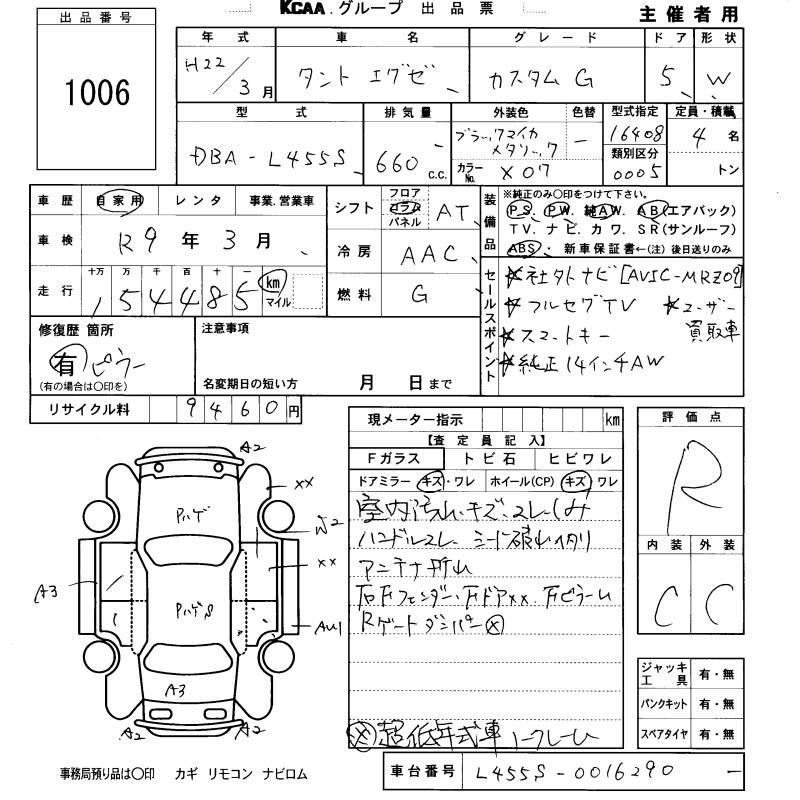 KCAA.グループ 出品票
主催者用
出品番号
1006
年式 車名 グレード ドア 形状
H22/3月 タント エグゼ カスタム G 5 W
型式 排気量 外装色 色替 型式指定 定員・積載
DBA-L455S 660 c.c. ブラックマイカメタリック － 16408 4名
カラーNo. X07 類別区分 0005 トン
車歴 自家用 レンタ 事業.営業車
車検 R9年3月
走行 十万 万 千 百 十 一
154485 km マイル
シフト フロア コラム パネル AT
冷房 AAC
燃料 G
装備品 ※純正のみ〇印をつけて下さい。
PS. PW. 純AW. AB(エアバック)
TV. ナビ. カワ. SR(サンルーフ)
ABS・新車保証書←(注) 後日送りのみ
セールスポイント
☆社外ナビ[AVIC-MRZ09]
☆フルセグTV ☆ユーザー買取車
☆スマートキー
☆純正14インチAW
修復歴 箇所
有 ピラー
(有の場合は〇印を)
注意事項
名変期日の短い方 月 日まで
リサイクル料 9460円
現メーター指示 km
【査定員記入】
Fガラス トビ石 ヒビワレ
ドアミラー キズ・ワレ ホイール(CP) キズ ワレ
室内汚れ・キズ・スレ・しみ
ハンドルスレ シート破れヘタリ
アンテナ折れ
右Fフェンダー・FドアXX
Rゲートダンパー×
×超低年式車ノークレーム
評価点
R
内装 外装
C C
ジャッキ工具 有・無
パンクキット 有・無
スペアタイヤ 有・無
A2
XX
W2
XX
AU1
A3
Pハゲ
PハゲS
A3
A2
A2
事務局預り品は〇印 カギ リモコン ナビロム
車台番号 L455S-0016290 －